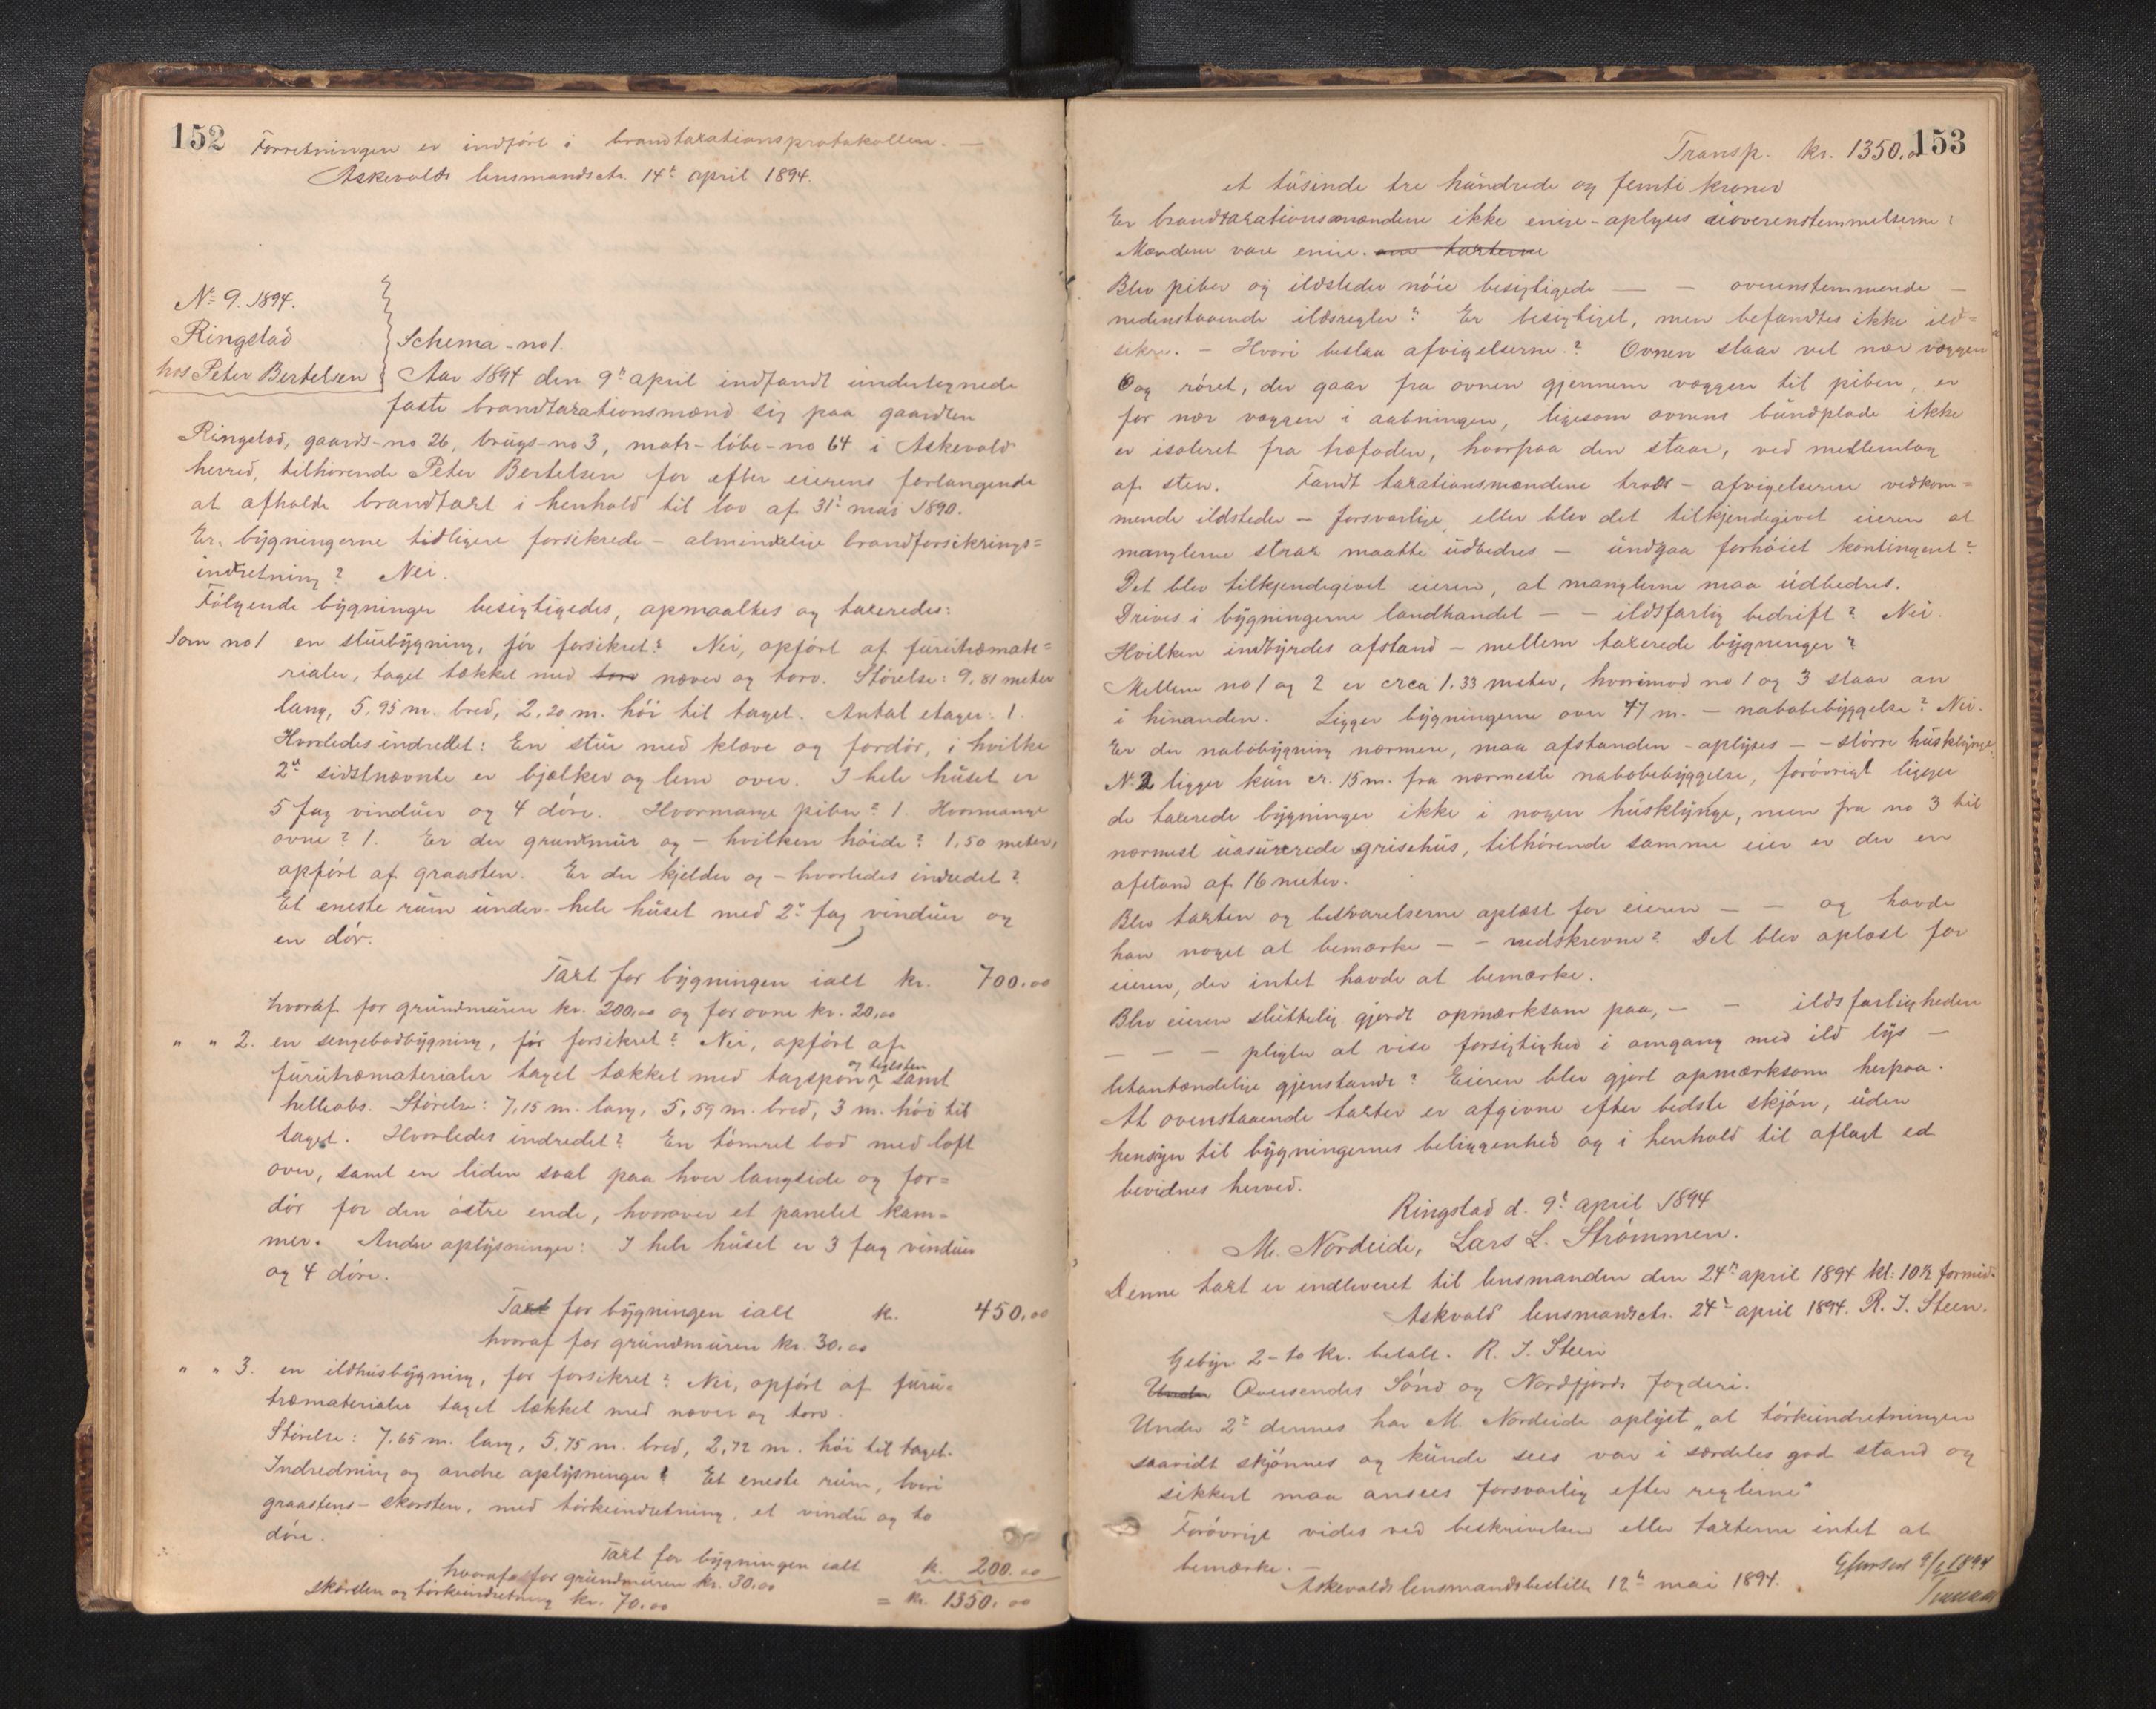 152
Forretningen er indført i brandtaxationsprotokollen. —
Askevolds lensmandsetr. 14de april 1894.
No 9. 1894.
Ringstad
hos Peter Bertelsen
Schema - no 1.
Aar 1894 den 9de april indfandt undertegnede
faste brandtaxationsmænd sig paa gaarden
Ringstad, gaards-no 26, brugs-no 3, matr-løbe-no 64 i Askevold
herred, tilhørende Peter Bertelsen for efter eierens forlangende
at afholde brandtaxt i henhold til lov af 31te mai 1890.
Er bygningerne tidligere forsikrede - almindelige brandforsikrings=
indretning? Nei.
Følgende bygninger besigtigedes, opmaaltes og taxeredes:
Som no 1 en stuebygning, før forsikret? Nei, opført af furutræmate=
rialer, taget tækket med torv næver og torv. Størelse: 9,81 meter
lang, 5,95 m. bred, 2,20 m. høi til taget. Antal etager: 1.
Hvorledes indredet: En stue med kleve og fordør, i hvilke
2de sidstnævnte er bjælker og lem over. I hele huset er
5 fag vinduer og 4 døre. Hvormange piber? 1. Hvormange
ovne? 1. Er der grundmur og - hvilken høide? 1,50 meter,
opført af graasten. Er der kjelder og - hvorledes indredet?
Et eneste rum under hele huset med 2de fag vinduer og
en dør.
Taxt for bygningen ialt kr. 700,00
hvoraf for grundmuren kr. 200,00 og for ovne kr. 20,00
" " 2. en sengebodbygning, før forsikret? Nei, opført af
furutræmaterialer taget tækket med tagspon og teglsten samt
helleabs. Størelse: 7,15 m. lang, 5,59 m. bred, 3 m. høi til
taget. Hvorledes indredet? En tømret bod med loft
over, samt en liden sval paa hver langside og for=
dør for den østre ende, hvorover et panelet kam=
mer. Andre oplysninger: I hele huset er 3 fag vinduer
og 4 døre.
Taxt for bygningen ialt kr. 450,00
hvoraf for grundmuren kr. 30,00
" " 3. en ildhusbygning, før forsikret? Nei, opført af furu=
træmaterialer taget tækket med næver og torv.
Størelse: 7,65 m. lang, 5,75 m. bred, 2,72 m. høi til taget.
Indredning og andre oplysninger? Et eneste rum, hvori
graastens-skorsten, med tørkeindretning, et vindu og to
døre.
Taxt for bygningen ialt kr. 200,00
hvoraf for grundmuren kr. 30,00
skorsten og tørkeindretning kr. 70,00 = kr. 1350,00
153
Transp. kr. 1350,00
et tusinde tre hundrede og femti kroner
Er brandtaxationsmændene ikke enige - oplyses uoverenstemmelserne?
Mændene vare enige. om taxterne
Blev piber og ildsteder nøie besigtigede — — overenstemmende —
nedenstaaende ildsregler? Er besigtiget, men befandtes ikke ild=
sikre. - Hvori bestaa afvigelserne? Ovnen staar vel nær væggen
og røret, der gaar fra ovnen gjennem væggen til piben, er
for nær væggen i aabningen, ligesom ovnens bundplade ikke
er isoleret fra træfoden, hvorpaa den staar, ved mellemlag
af sten. Fandt taxationsmændene trods - afvigelserne vedkom=
mende ildsteder - forsvarlige, eller blev det tilkjendegivet eieren at
manglerne strax maatte udbedres - undgaa forhøiet kontingent?
Det blev tilkjendegivet eieren, at manglerne maa udbedres.
Drives i bygningerne landhandel — — ildsfarlig bedrift? Nei.
Hvilken indbyrdes afstand - mellem taxerede bygninger?
Mellem no 1 og 2 er crca 1.33 meter, hvorimod no 1 og 3 staar an
i hinanden. Ligger bygningerne over 77 m. - nabobebyggelse? Nei.
Er der nabobygning nærmere, maa afstanden - oplyses — - større husklynge
No 2 ligger kun cr. 15 m. fra nærmeste nabobebyggelse, forøvrigt ligger
de taxerede bygninger ikke i nogen husklynge, men fra no 3 til
nærmest uasurerede grisehus, tilhørende samme eier er der en
afstand af 16 meter.
Blev taxten og besvarelserne oplæst for eieren — — og havde
han noget at bemærke — - nedskrevne? Det blev oplæst for
eieren, der intet havde at bemærke.
Blev eieren sluttelig gjordt opmærksom paa, — — ildsfarligheden
— — — pligter at vise forsigtighed i omgang med ild lys —
letantændelige gjenstande? Eieren blev gjort opmærksom herpaa.
At ovenstaaende taxter er afgivne efter bedste skjøn, uden
hensyn til bygningernes beliggenhed og i henhold til aflagt ed
bevidnes herved.
Ringstad d. 9de april 1894
M. Nordeide, Lars L. Strømmen.
Denne taxt er indleveret til lensmanden den 24de april 1894 kl: 10½ formid.
Askvold lensmansetr. 24de april 1894. R. J. Steen.
Gebyr 2-to kr. betalt. R. J. Steen
Under Oversendes Sønd og Nordfjords fogderi.
Under 2de dennes har M. Nordeide oplyst „at tørkeindretningen
saavidt skjønnes og kunde sees var i særdeles god stand og
sikkert maa ansees forsvarlig efter reglerne"
Forøvrigt vides ved beskrivelsen eller taxterne intet at
bemærke. —
Askevolds lensmandsbestill. 12te mai 1894.